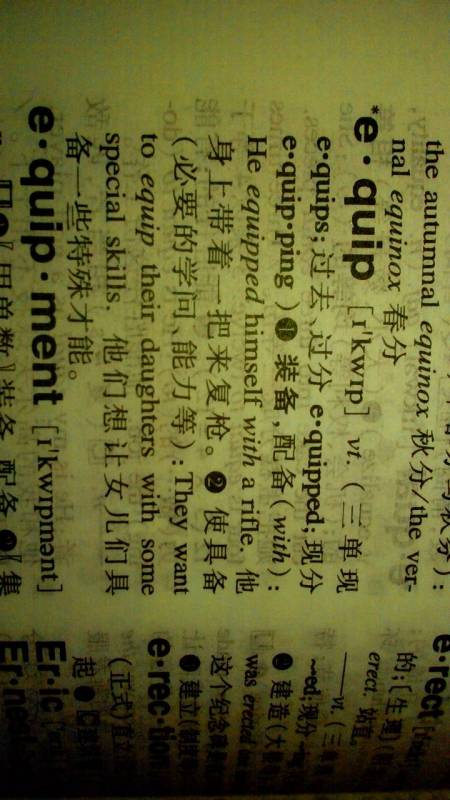 the autumnal equinox 秋分/the ver-
nal equinox 春分
*e·quip [ɪ'kwɪp] vt. (三单现
e·quips;过去、过分 e·quipped;现分
e·quip·ping) ❶ 装备,配备(with):
He equipped himself with a rifle. 他
身上带着一把来复枪。❷ 使具备
(必要的学问、能力等): They want
to equip their daughters with some
special skills. 他们想让女儿们具
备一些特殊才能。
e·quip·ment [ɪ'kwɪpmənt]
用单数〗装备,配备 ❷〖集
e·rect
的;[生理]
erect. 站直。
—vt. (三
~ed;现分
❶ 建造(大
was erected
这个纪念碑
❷ 建立(制度
e·rec·tion
(正式)直立
起 ❷
Er·ic